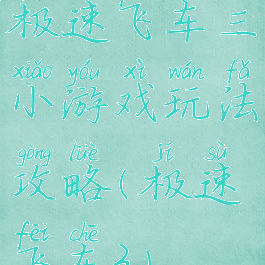 极速飞车三
xiǎo yóu xì wán fǎ
小游戏玩法
gōng lüè jí sù
攻略(极速
fēi chē
飞车3)